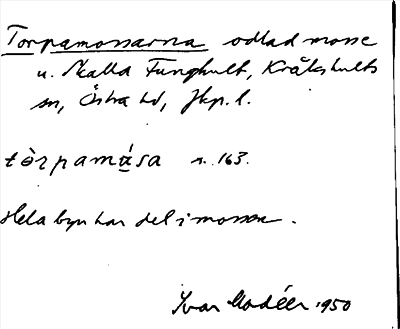 Torpamossarna odlad mosse
u. Skalla Funghult, Kråkshults
sn, Östra hd, Jkp. l.
tòrpamåsa s. 163.
Hela byn har del i mossen.
Ivar Modéer 1950